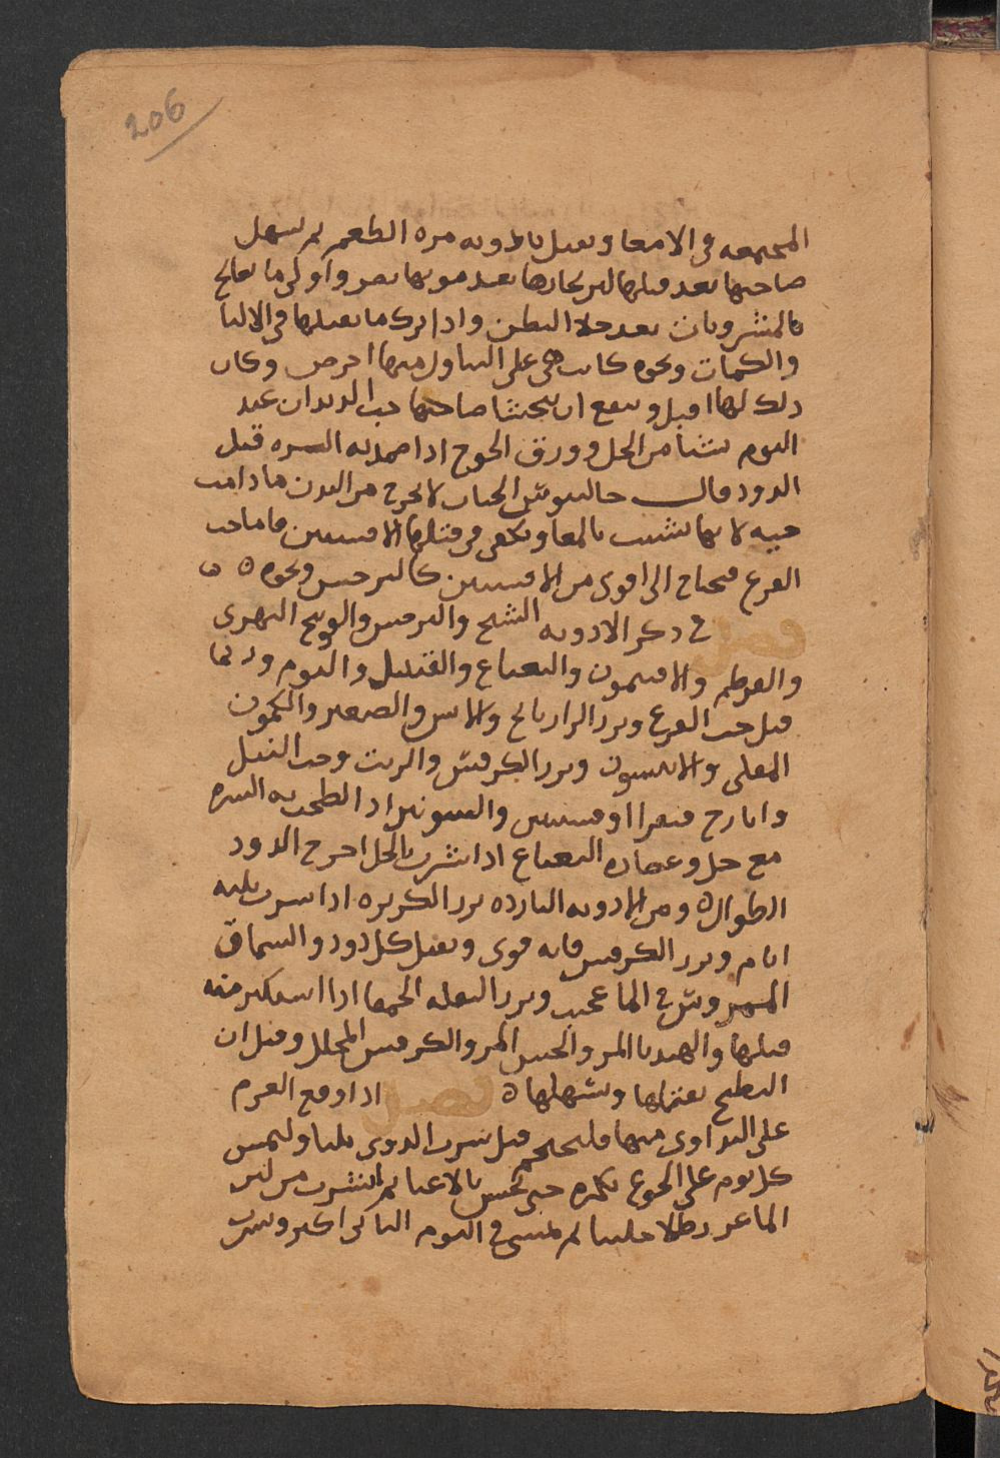 206
المجتمعه في الامعا وتقتل بادويه مره الطعم ثم تسهل
صاحبها بعد قتلها لان بخارها بعد موتها يضر واولى ما تعالج
بالمشروبات بعد خلا البطن واذا ترك ما يقتلها في الالبا
والكبات ونحوه كانت هي على التناول منها احرص وكان
ذلك لها اقتل وينفع ان يتحشا صاحب حب الديدان عند
النوم شيا من الخل وورق الخوخ اذا ضمد به السره قتل
الدود وقال جالينوس الحيات لا تخرج من البدن ما دامت
حيه لانها تتشبث بالمعا ويكفي في قتلها الافسنتين فاما حب
القرع فيحتاج الى اقوى من الافسنتين كالسرخس ونحوه
في ذكر الادويه الشيح والترمس والوج النهري
والقرطم والافتيمون والنعناع والقنبيل والثوم وربما
قتل حب القرع وبزر الرازيانج والاس والصعتر والكمون
المقلي والانيسون وبزر الكرفس والزيت وحب النيل
وايارج فيقرا او فسنتين والشونيز اذا لطخ به السره
مع خل وعصاره النعناع اذا شرب بالخل اخرج الدود
الطوال ومن الادويه البارده بزر الكزبره اذا شرب ثلثه
ايام وبزر الكرفس فانه قوى ويقتل كل دود والسماق
الممروس في الما عجيب وبزر البقله الحمقا اذا استكثر منه
قتلها والهندبا المر والخس المر والكرفس المخلل وقيل ان
البطيخ يقتلها ويسهلها اذا وقع العزم
على التداوى منها فليحتم قبل شرب الدوى ثلثا وليمش
كل يوم على الجوع بكره حتى يحس بالاعيا ثم ليشرب من لبن
الماعز رطلا حليبا ثم يمشى في اليوم الثاني اكثر وشرب